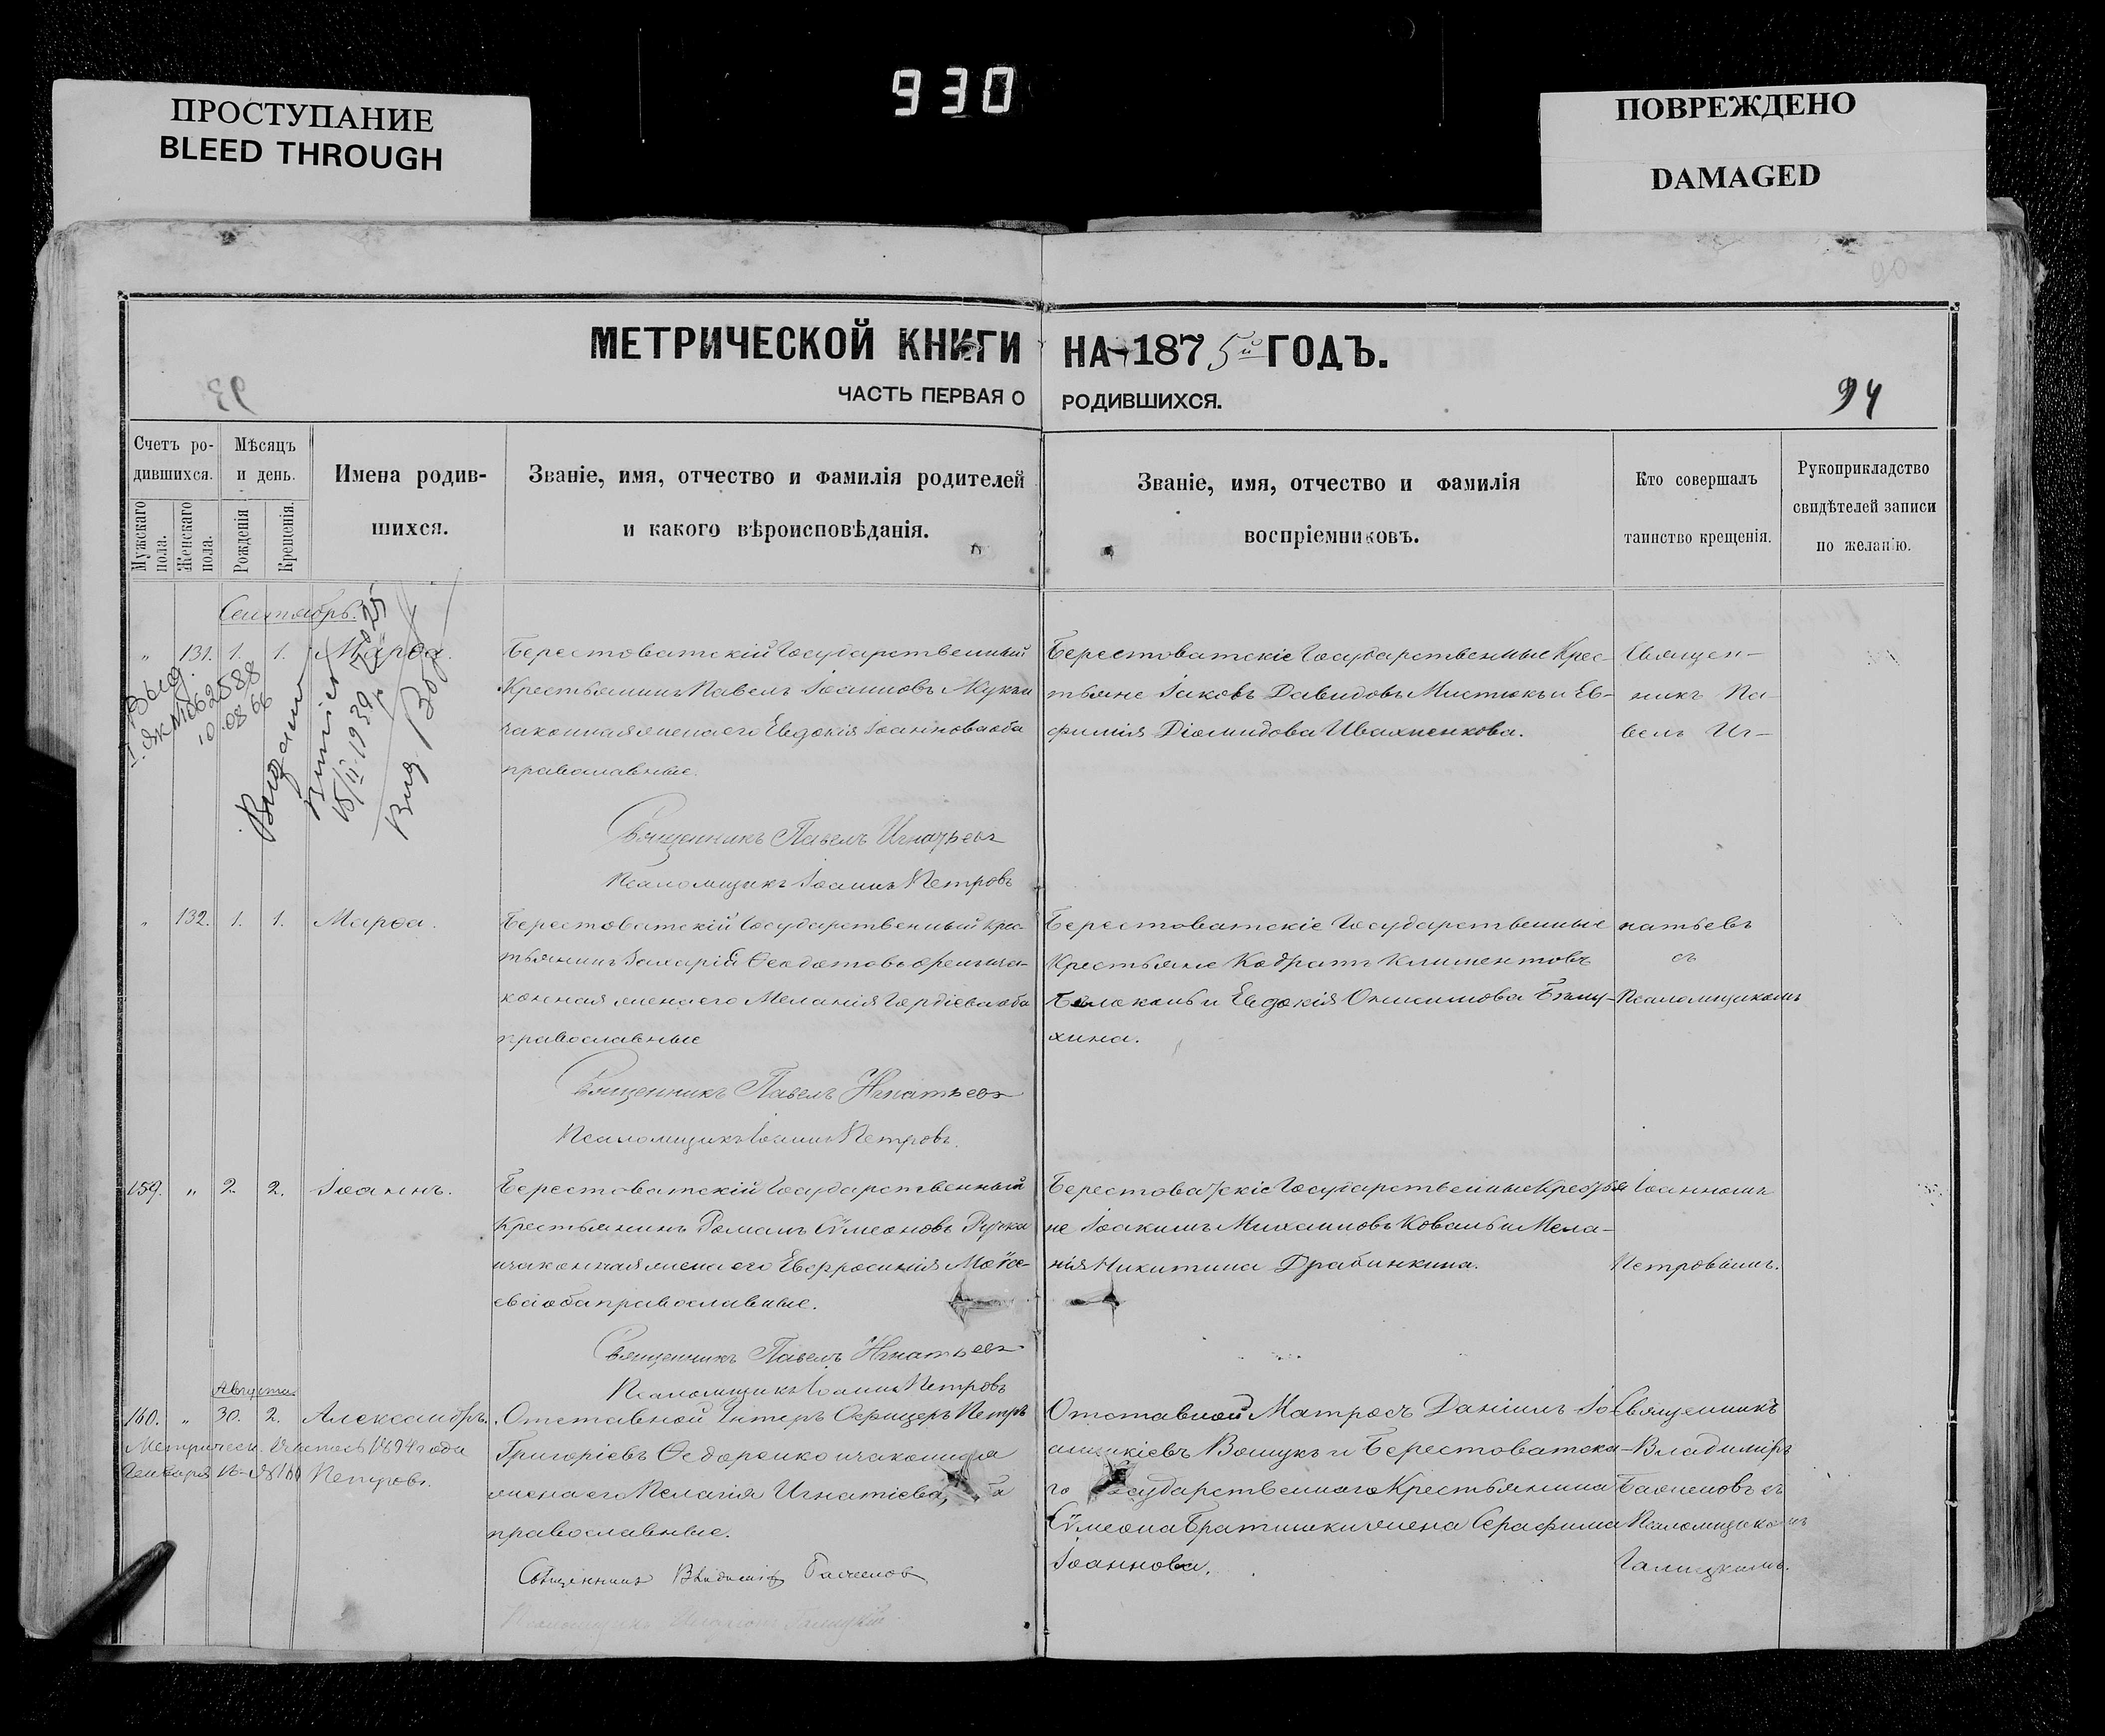 930
ПРОСТУПАНИЕ
BLEED THROUGH
ПОВРЕЖДЕНО
DAMAGED
МЕТРИЧЕСКОЙ КНИГИ НА 1875й ГОДЪ.
ЧАСТЬ ПЕРВАЯ О РОДИВШИХСЯ.
93
94
Счетъ ро-
дившихся.
Мужскаго пола.
Женскаго пола.
Мѣсяцъ
и день.
Рожденія
Крещенія.
Имена родив-
шихся.
Званіе, имя, отчество и фамилія родителей
и какого вѣроисповѣданія.
Званіе, имя, отчество и фамилія
воспріемниковъ.
Кто совершалъ
таинство крещенія.
Рукоприкладство
свидѣтелей записи
по желанію.
Сентябрь.
" 131. 1. 1. Марѳа.
Берестоватскій Государственный
Крестьянинъ Павелъ Іоанновъ
законная жена его Евдокія Іоаннова оба
православные.
Священникъ Павелъ Игнатьевъ
Псаломщикъ Іоаннъ Петровъ
Берестоватскіе Государственные Крес-
тьяне Іаковъ Давидовъ и Ев-
фимія Діомидова Ивахненкова.
Священ-
никъ Па-
велъ Иг-
Выд.
10.08 66
15/II-1939
" 132. 1. 1. Марѳа.
Берестоватскій Государственный Крес-
тьянинъ Захарій Ѳеодотовъ
конная жена его Меланія Гордіева оба
православные
Священникъ Павелъ Игнатьевъ
Псаломщикъ Іоаннъ Петровъ.
Берестоватскіе Государственные
Крестьяне Кодратъ Климентовъ
и Евдокія Онисимова
хина.
натьевъ
съ
Псаломщикомъ
159. " 2. 2. Іоаннъ.
Берестоватскій Государственный
Крестьянинъ Романъ Сѵмеоновъ Ручка
и законная жена его Евфросинія Моѵсе-
ева оба православные.
Священникъ Павелъ Игнатьевъ
Псаломщикъ Іоаннъ Петровъ
Берестоватскіе Государственные Крестья
не Іоакимъ Михаиловъ Коваль и Мела-
нія Никитина Драбинкина.
Іоанномъ
Петровымъ.
Августа
160. " 30. 2. Александръ.
1894 года
Января
Петровъ.
Отставной Унтеръ Офицеръ Петръ
Григоріевъ Ѳедоренко и законная
жена его Пелагія Игнатіева,
православные.
Священникъ Владиміръ
Отставной Матросъ Даніилъ Іо-
и Берестоватска-
го Государственнаго Крестьянина
Сѵмеона Братишки жена Серафима
Іоаннова.
Священникъ
Владиміръ
съ
Псаломщикомъ
Галицкимъ.